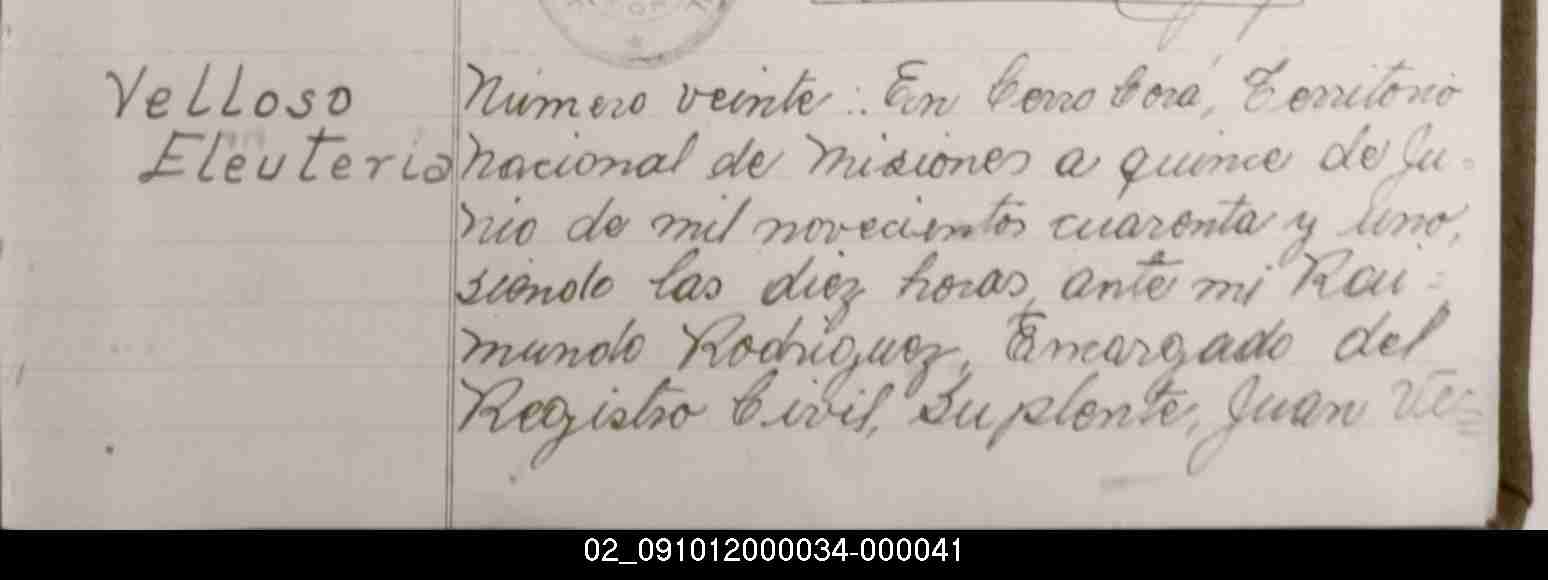 Velloso
Eleuteria
Número veinte: En Cerro Corá, Territorio
nacional de Misiones a quince de Ju-
nio de mil novecientos cuarenta y uno,
siendo las diez horas, ante mi Rai-
mundo Rodriguez, Encargado del
Registro Civil, Suplente, Juan Ve-
02_091012000034-000041